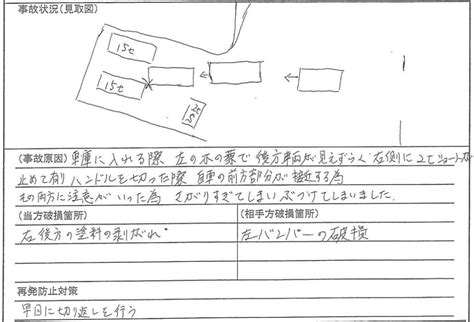 事故状況(見取図)
15t
15t
2t
(事故原因) 車庫に入れる際 左の木の葉で後方車両が見えずらく右側に2tショートが
止めて有りハンドルを切った際 自車の前方部分が接近する為
その両方に注意がいった為 さがりすぎてしまいぶつけてしまいました.
(当方破損箇所)
(相手方破損箇所)
右後方の塗料の剥がれ
左バンパーの破損
再発防止対策
早目に切り返しを行う